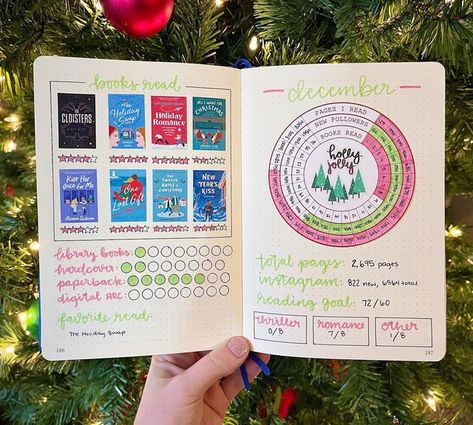 books read
CLOISTERS
the Holiday Swap
Holiday Romance
ALL I WANT FOR CHRISTMAS
Kiss Her Once For Me
Alison Cochrun
One Last Gift
THE TWELVE DATES OF CHRISTMAS
NEW YEAR'S KISS
library books:
hardcover:
paperback:
digital ARC:
favorite read:
The Holiday Swap
186
december
PAGES I READ
NEW FOLLOWERS
BOOKS READ
holly jolly
total pages: 2,695 pages
instagram: 822 new, 6564 total
reading goal: 72/60
thriller
0/8
romance
7/8
other
1/8
187